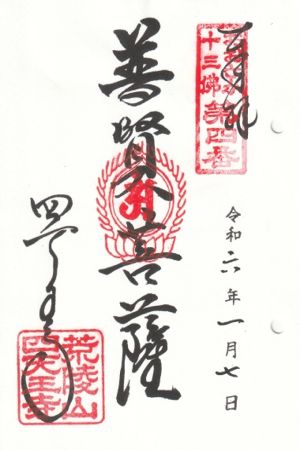 奉拝
十三佛
第四番
令和六年一月七日
普賢菩薩
四天王寺
荒陵山
四天王寺